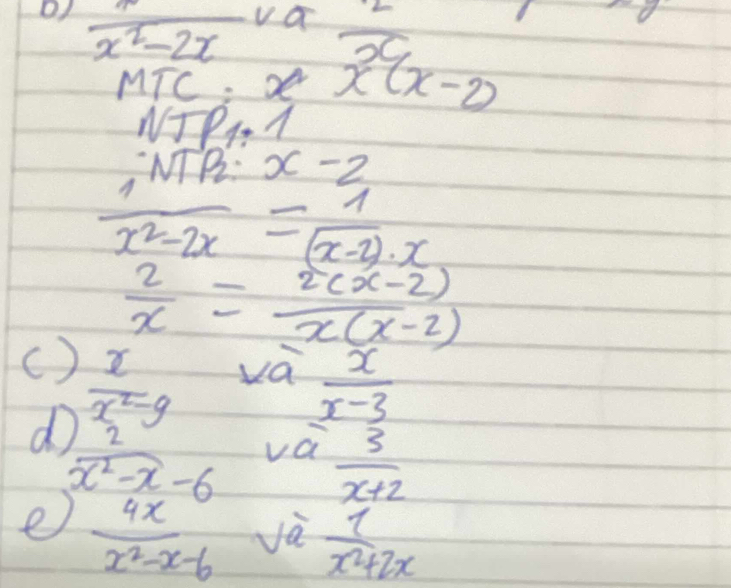 b) 1/(x²-2x) và 2/x
MTC: x(x-2)
NTP₁: 1
NTP₂: x-2
1/(x²-2x) = 1/((x-2).x)
2/x = 2(x-2)/(x(x-2))
c) x/(x²-9) và x/(x-3)
d) 2/(x²-x-6) và 3/(x+2)
e) 4x/(x²-x-6) và 1/(x²+2x)